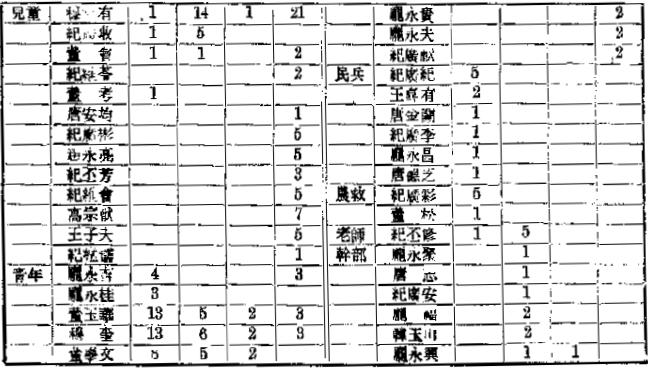 兒童 有 1 14 1 21
紀 收 1 5
董 1 1 2
紀 2
董 考 1
唐安均 1
紀廣彬 5
永亮 5
紀丕芳 3
紀 會 5
高宗猷 7
王子夫 5
紀 1
青年 龐永吉 4 3
龐永桂 3
董玉 13 5 2 3
穆 奎 13 6 2 3
董學文 8 5 2
龐永貴 2
龐永夫 2
紀廣猷 2
民兵 紀廣紀 5
王 有 2
唐金蘭 1
紀廣李 1
龐永昌 1
唐 芝 1
農救 紀廣彩 5
董 松 1
老師 紀丕修 1 5
幹部 龐永聚 1
唐 志 1
紀廣安 1
龐 2
韓玉 2
龐永興 1 1